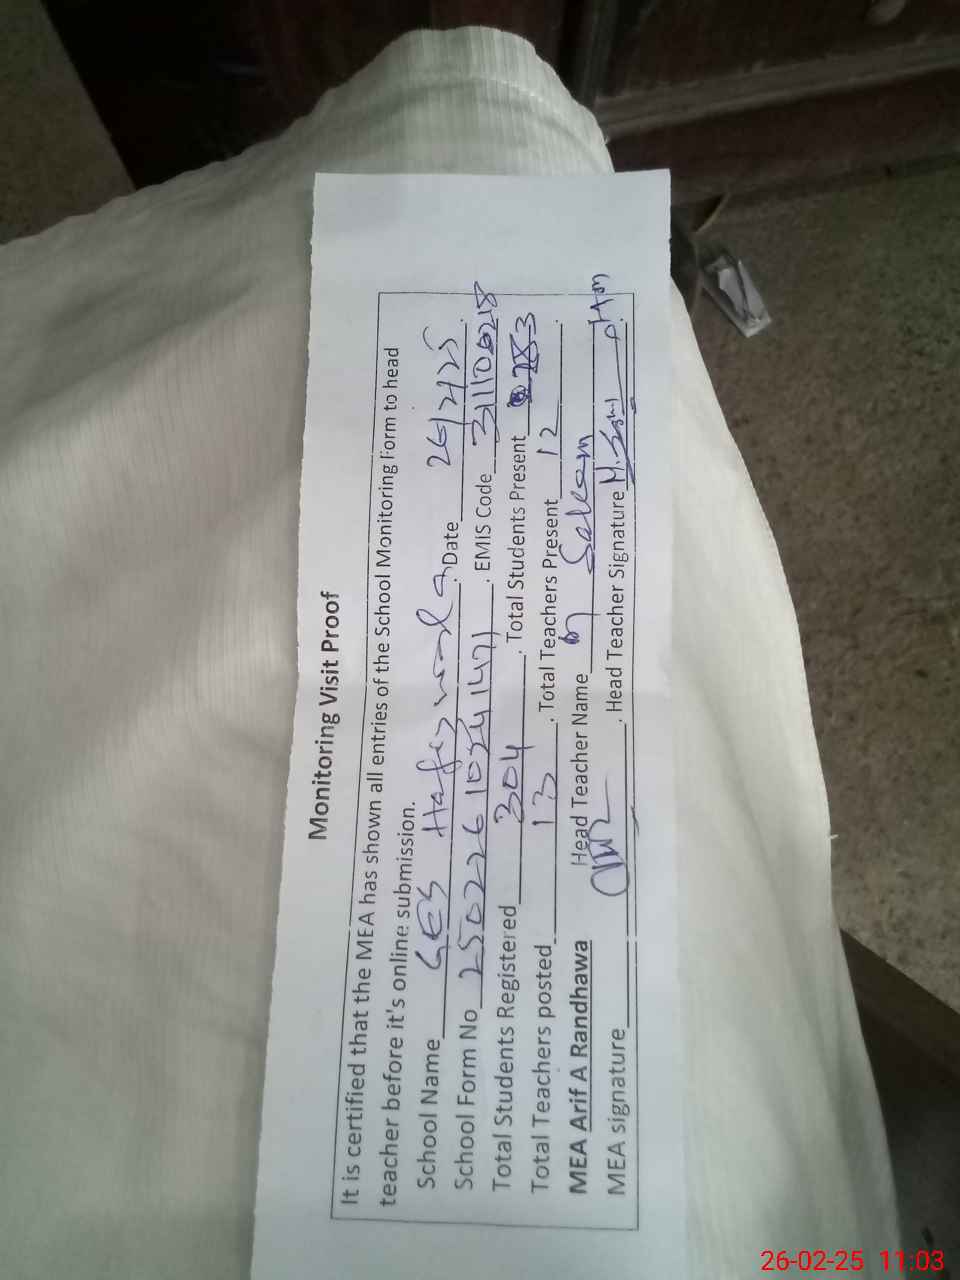 Monitoring Visit Proof
It is certified that the MEA has shown all entries of the School Monitoring Form to head
teacher before it's online submission.
School Name GES Hafiz wala . Date 26/2/25 .
School Form No 250226 1034 1471 . EMIS Code 311100218
Total Students Registered 304 . Total Students Present 283
Total Teachers posted 13 . Total Teachers Present 12 .
MEA Arif A Randhawa Head Teacher Name M Saleem
MEA signature . Head Teacher Signature
26-02-25 11:03